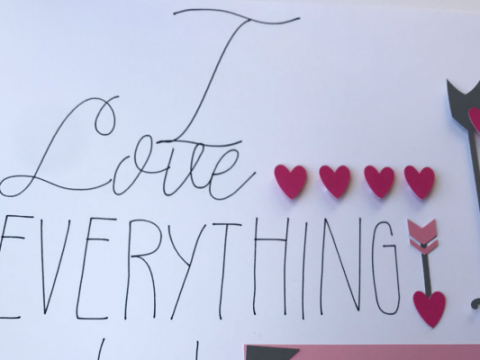 I
Love
EVERYTHING